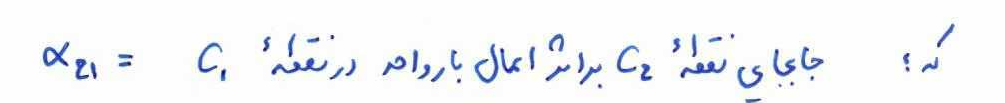 که : جابجایی نقطهٔ C₂ براثر اعمال بار واحد در نقطهٔ C₁ = α₂₁